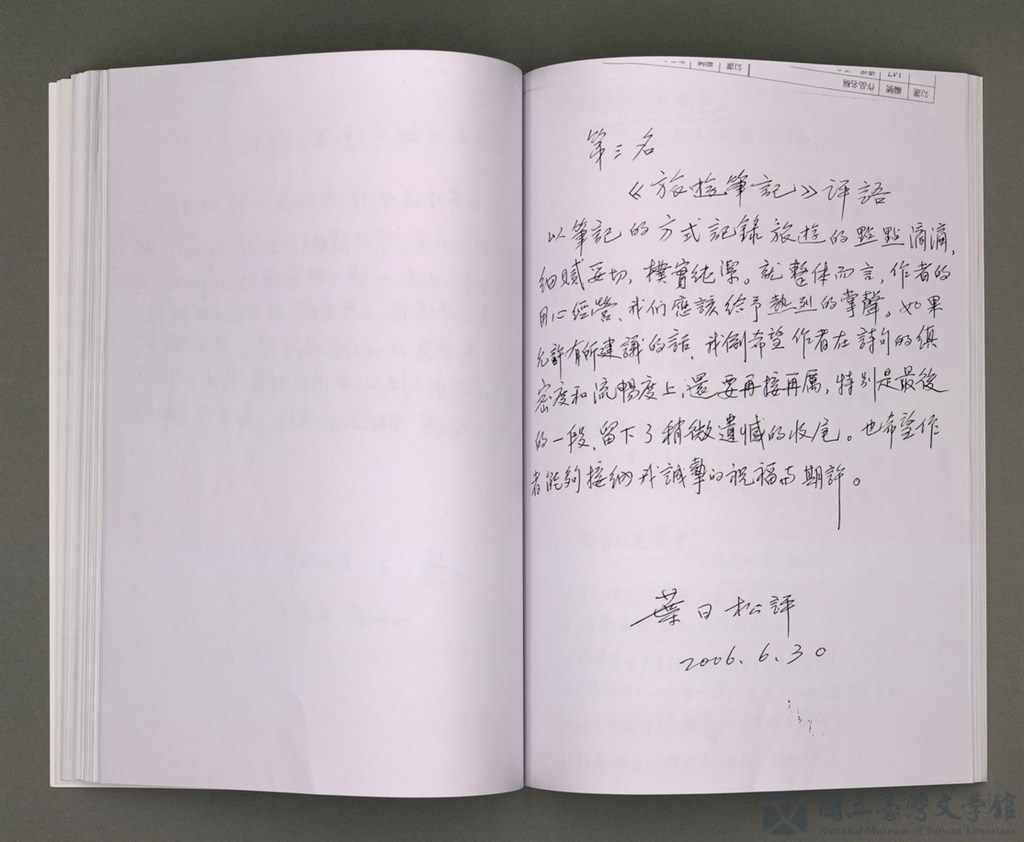 第三名
《旅遊筆記》評語
以筆記的方式記錄旅遊的點點滴滴,
細膩妥切,樸實純潔。就整体而言,作者的
用心經營、我们應該給予熱烈的掌聲。如果
允許有所建議的話、我倒希望作者在詩句的縝
密度和流暢度上,還要再接再厲,特別是最後
的一段、留下了稍微遺憾的收尾。也希望作
者能夠接納我誠摯的祝福与期許。
葉日松評
2006.6.30
初選
編號
作品名稱
初選
編號
147
國立臺灣文學館
National Museum of Taiwan Literature